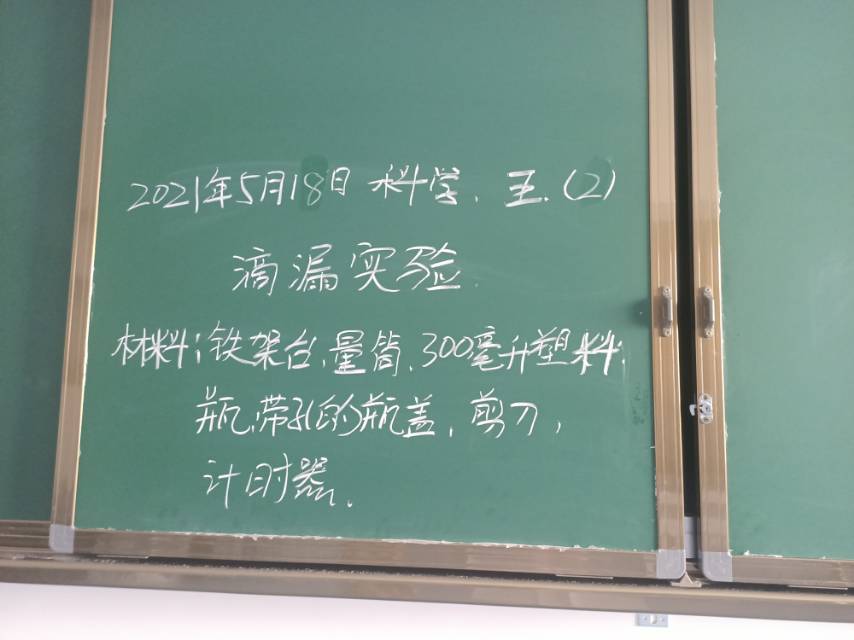 2021年5月18日 科学. 王.(2)
滴漏实验.
材料:铁架台、量筒、300毫升塑料
瓶,带孔的瓶盖、剪刀,
计时器、